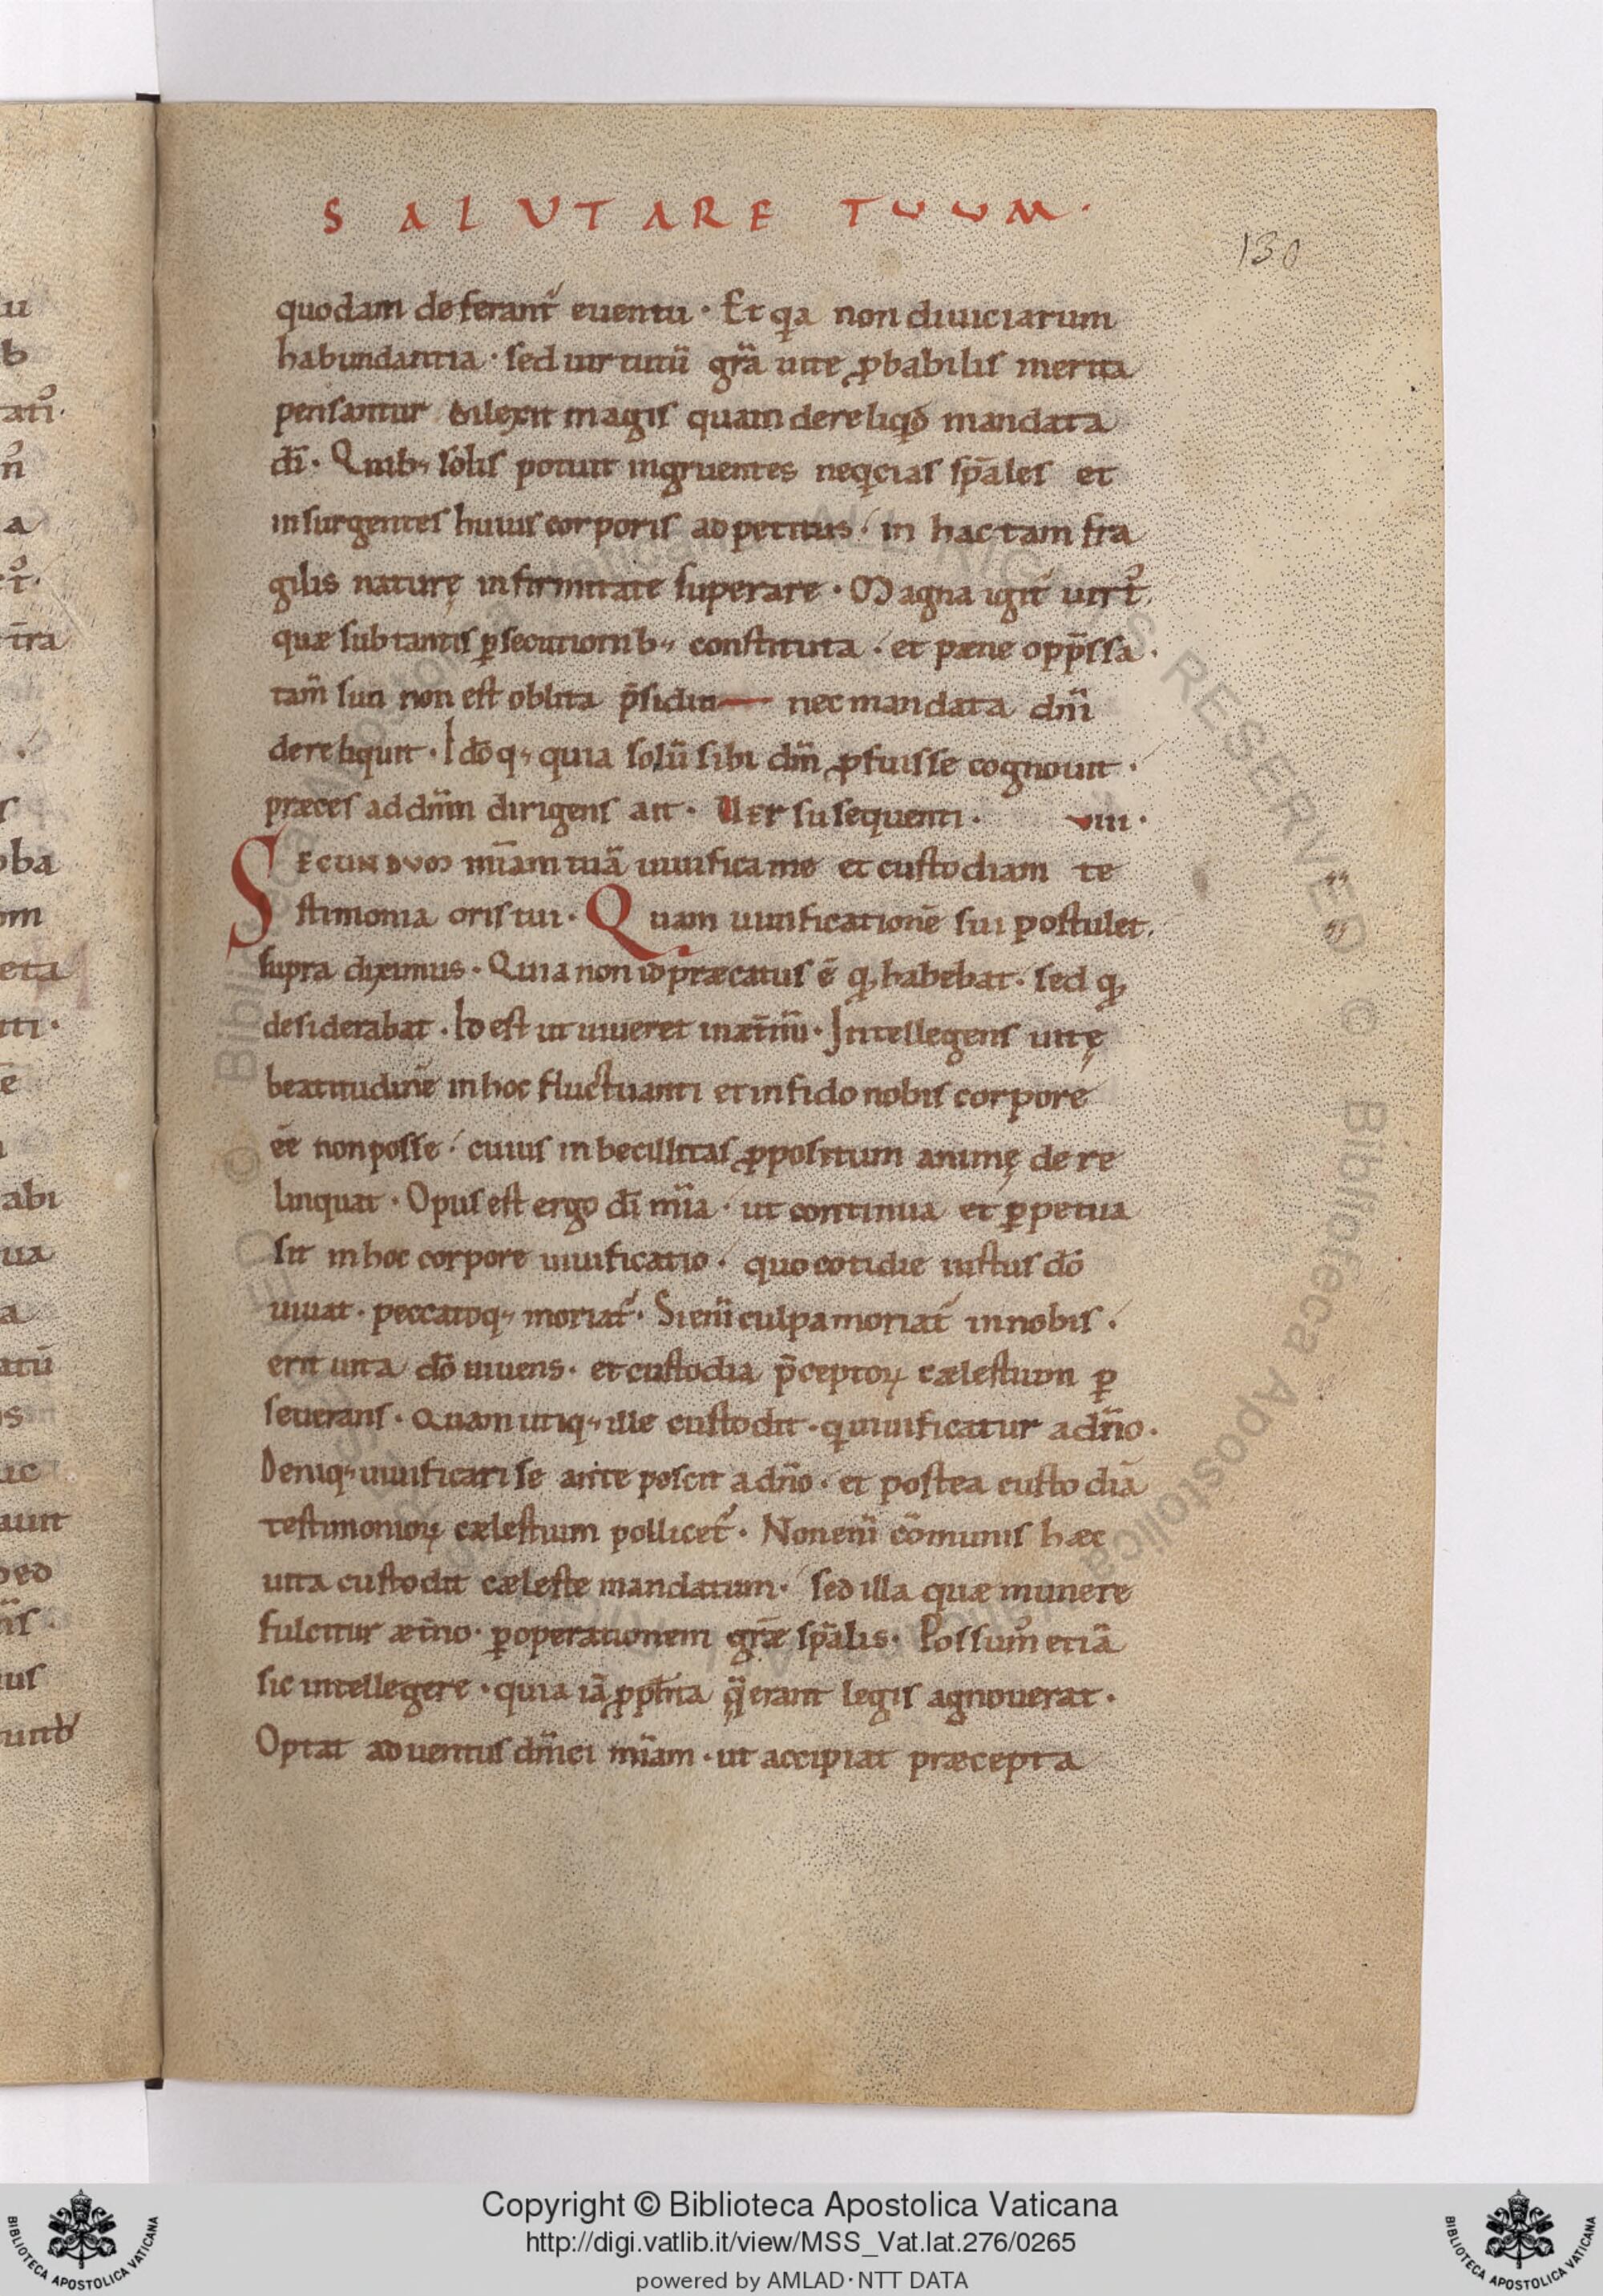 SALUTARE TUUM·
130
quodam deferant᷒ euentu · Et qͥa non diuiciarum
habundantia · sed uirtutū gr̄a uite ꝓbabilis merita
pensantur dilexit magis quam dereliqͥd mandata
dī · Quibꝫ solis potuit ingruentes neqͥcias sp̄ales et
insurgentes huius corporis adpetitus · in hac tam fra
gilis naturę infirmitate superare · Magna igit᷒ uirt᷒
quæ sub tantis ꝑsecutionibꝫ constituta · et pæne opp̄ssa ·
tam̄ sui non est oblita p̄sidii nec mandata dn̄i
dereliquit · Idōqꝫ quia solū sibi dn̄m ꝓfuisse cognouit ·
præces ad dn̄m dirigens ait · Uersu sequenti · VIII ·
SECUNDUM mīam tuā uiuifica me et custodiam te
stimonia oris tui · Quam uiuificationē sui postulet,
supra diximus · Quia non id præcatus ē qͩ habebat · sed qͩ
desiderabat · Id est ut uiueret in æt̄nū · Intellegens uitę
beatitudinē in hoc fluctuanti et infido nobis corpore
ēe non posse · cuius inbecillitas ꝓpositum animę dere
linquat · Opus est ergo dī mīa · ut continua et ꝑpetua
sit in hoc corpore uiuificatio · quo cotidie iustus dō
uiuat · peccatoqꝫ moriat᷒ · Si enī culpa moriat᷒ in nobis ·
erit uita dō uiuens · et custodia p̄ceptoꝝ cælestium ꝑ
seuerans · Quam utiqꝫ ille custodit · qͥ uiuificatur a dn̄o ·
Deniqꝫ uiuificari se ante poscit a dn̄o · et postea custodiā
testimonioꝝ cælestium pollicet᷒ · Non enī cōmunis hæc
uita custodit cæleste mandatum · sed illa quæ munere
fulcitur æt̄no · ꝑ operationem gr̄æ sp̄alis · Possum᷒ etiā
sic intellegere · quia iā ꝓph̄ia q̄ erant legis agnouerat ·
Optat aduentus dn̄ici mīam · ut accipiat præcepta
Copyright © Biblioteca Apostolica Vaticana
http://digi.vatlib.it/view/MSS_Vat.lat.276/0265
powered by AMLAD·NTT DATA